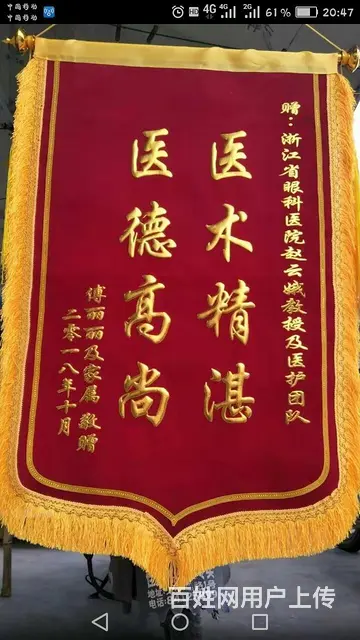 中国移动
中国移动
HD 4G 4G 2G 61% 20:47
赠：浙江省眼科医院赵云娥教授及医护团队
医术精湛
医德高尚
傅丽丽及家属 敬赠
二零一八年十月
百姓网用户上传